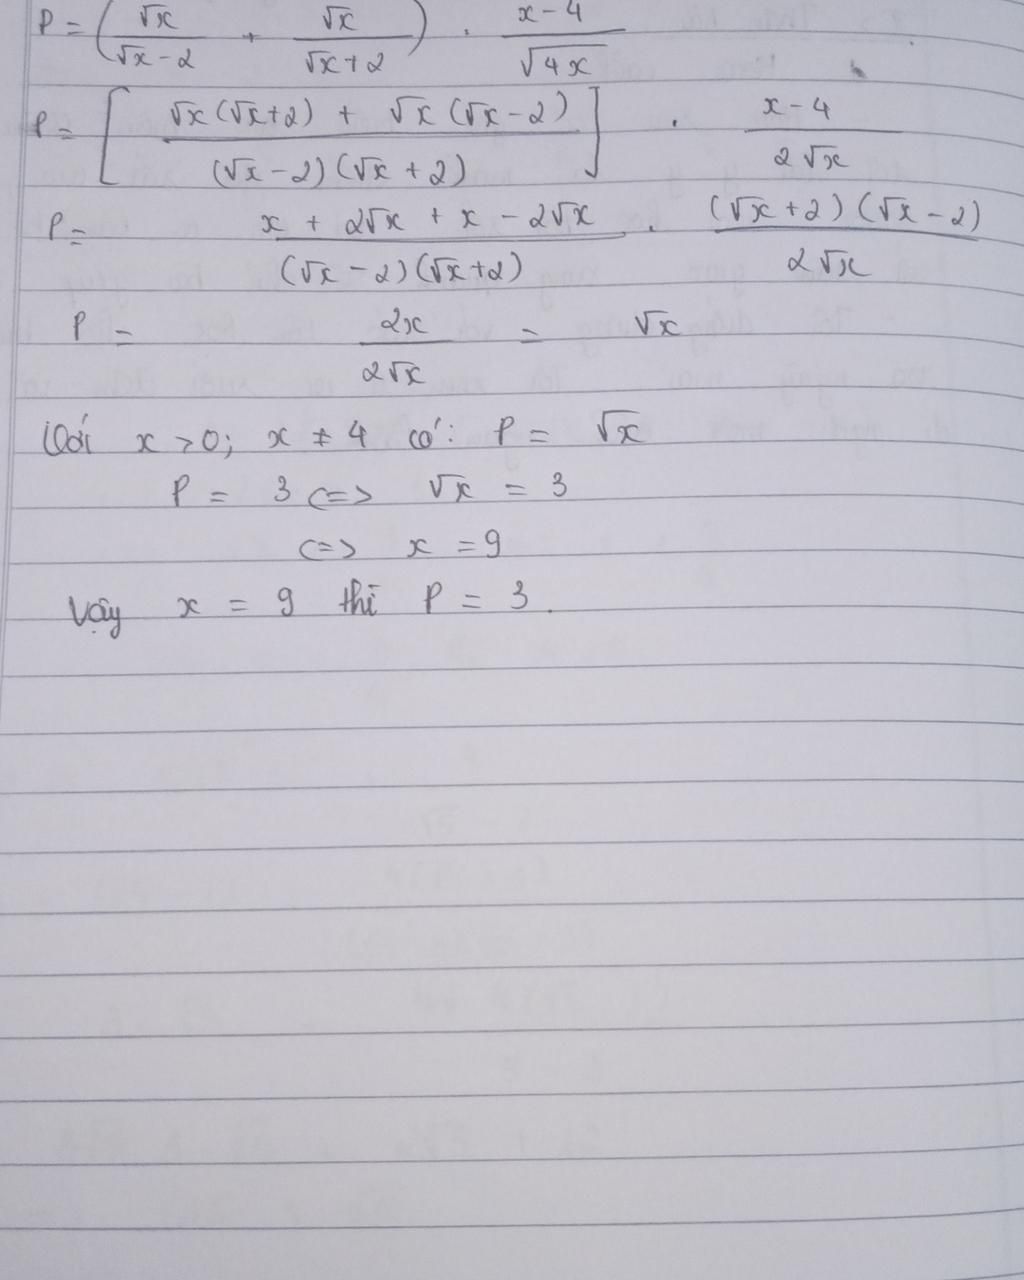 P = (√x/(√x-2) + √x/(√x+2)) . (x-4)/√4x
P = [(√x(√x+2) + √x(√x-2))/((√x-2)(√x+2))] . (x-4)/(2√x)
P = (x + 2√x + x - 2√x)/((√x-2)(√x+2)) . ((√x+2)(√x-2))/(2√x)
P = 2x/(2√x) = √x
Với x > 0; x ≠ 4 có: P = √x
P = 3 <=> √x = 3
<=> x = 9
Vậy x = 9 thì P = 3.